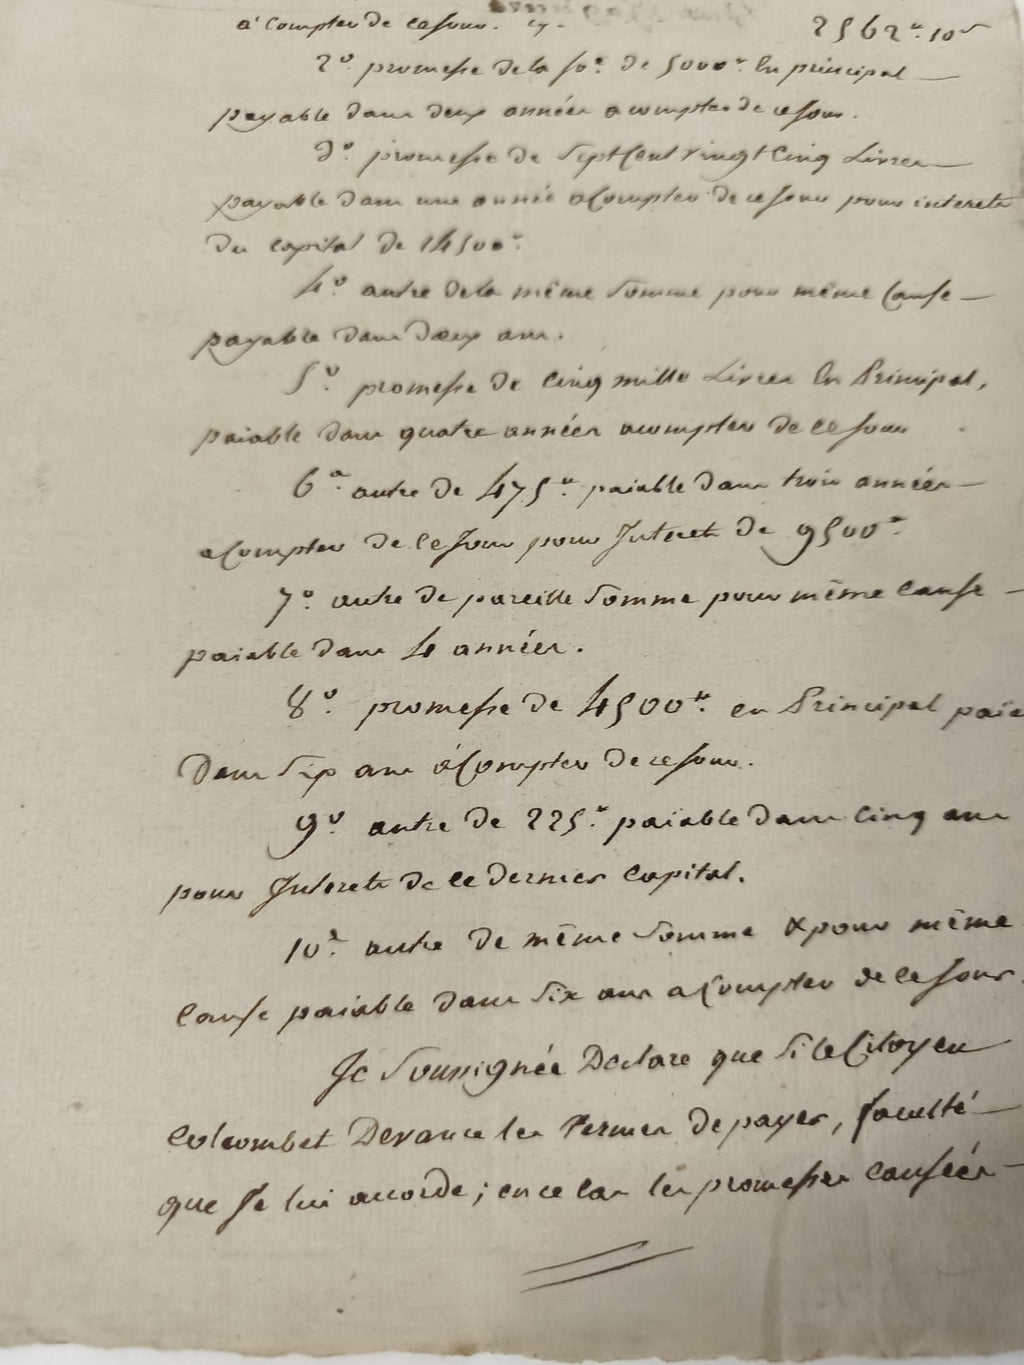 à Compter de ce Jour. cy. 2562ᵗᵗ. 10ˢ
2°. promesse de la soᵉ. de 5000ᵗᵗ En principal —
payable dans deux années a compter de ce Jour.
3°. promesse de Sept Cent vingt Cinq Livres —
payable dans une année a Compter de ce Jour pour interets
du capital de 14500ᵗᵗ.
4°. autre de la même Somme pour même Cause —
payable dans deux ans.
5°. promesse de Cinq mille Livres En Principal,
paiable dans quatre années a compter de ce Jour
6°. autre de 475ᵗᵗ. paiable dans trois années —
a Compter de ce Jour pour Interets de 9500ᵗᵗ.
7°. autre de pareille Somme pour même Cause —
paiable dans 4 années.
8°. promesse de 4500ᵗᵗ. en Principal païa
Dans Six ans à Compter de ce Jour.
9°. autre de 225ᵗᵗ. païable dans Cinq ans
pour Interets de ce dernier Capital.
10°. autre de même Somme & pour même
Cause paiable dans Six ans a Compter de ce Jour.
Je Soussignée Declare que Si le Citoyen
Colcombet Devance les Termes de payer, faculté —
que Je lui accorde; en ce Cas les promesses Causées —